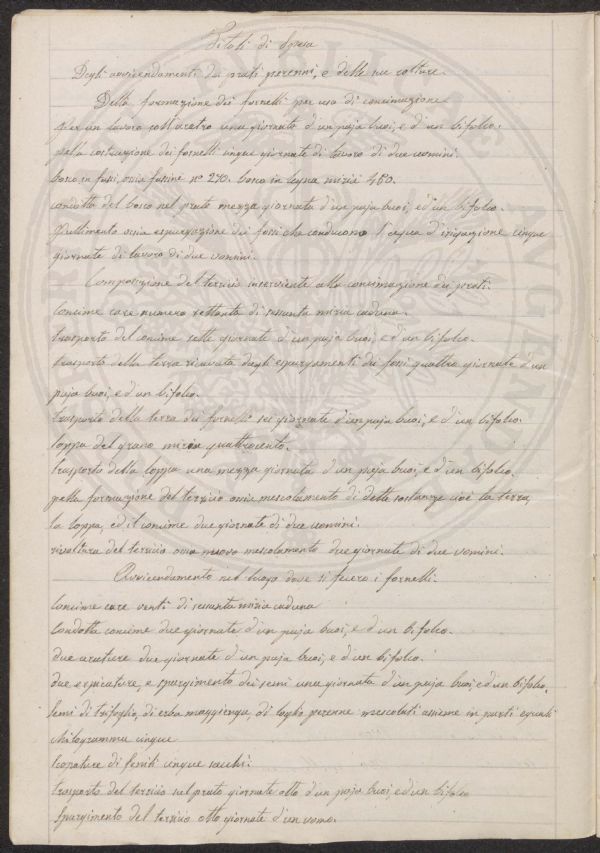 Titoli di Spesa
Degli avvicendamenti dei prati perenni, e delle sue colture.
Della formazione dei fornelli per uso di concimazione
Per un lavoro coll'aratro una giornata d'un paja buoi, e d'un bifolco.
pella costruzione dei fornelli cinque giornate di lavoro di due uomini.
bosco in fassi, ossia fassine n° 270. bosco in legna miria 460.
condotta del bosco nel prato mezza giornata d'un paja buoi, ed'un bifolco.
ossia espurgazione dei fossi che conducono l'acqua d'irrigazione cinque
giornate di lavoro di due uomini.
Composizione del terricio inserviente alla concimazione dei prati.
Concime care numero settanta di sessanta miria caduna.
trasporto del concime sette giornate d'un paja buoi, e d'un bifolco.
trasporto della terra ricavata dagli espurgamenti dei fossi quattro giornate d'un
paja buoi, e d'un bifolco.
trasporto della terra dei fornelli sei giornate d'un paja buoi, e d'un bifolco.
loppa del grano miria quattrocento.
trasporto della loppa una mezza giornata d'un paja buoi, e d'un bifolco.
pella formazione del terricio ossia mescolamento di dette sostanze cioè la terra,
la loppa, ed il concime due giornate di due uomini.
rivoltura del terricio ossia nuovo mescolamento due giornate di due uomini.
Avvicendamento nel luogo dove si fecero i fornelli.
Concime care venti di sessanta miria caduna
Condotta concime due giornate d'un paja buoi, e d'un bifolco.
due arature due giornate d'un paja buoi, e d'un bifolco.
due erpicature, e spargimento dei semi una giornata d'un paja buoi, e d'un bifolco.
semi di trifoglio, di erba maggienga, di loglio perenne mescolati assieme in parti eguali
chilogramma cinque
scopature di fenili cinque sacchi.
trasporto del terricio nel prato giornate otto d'un paja buoi, e d'un bifolco
spargimento del terricio otto giornate d'un uomo.